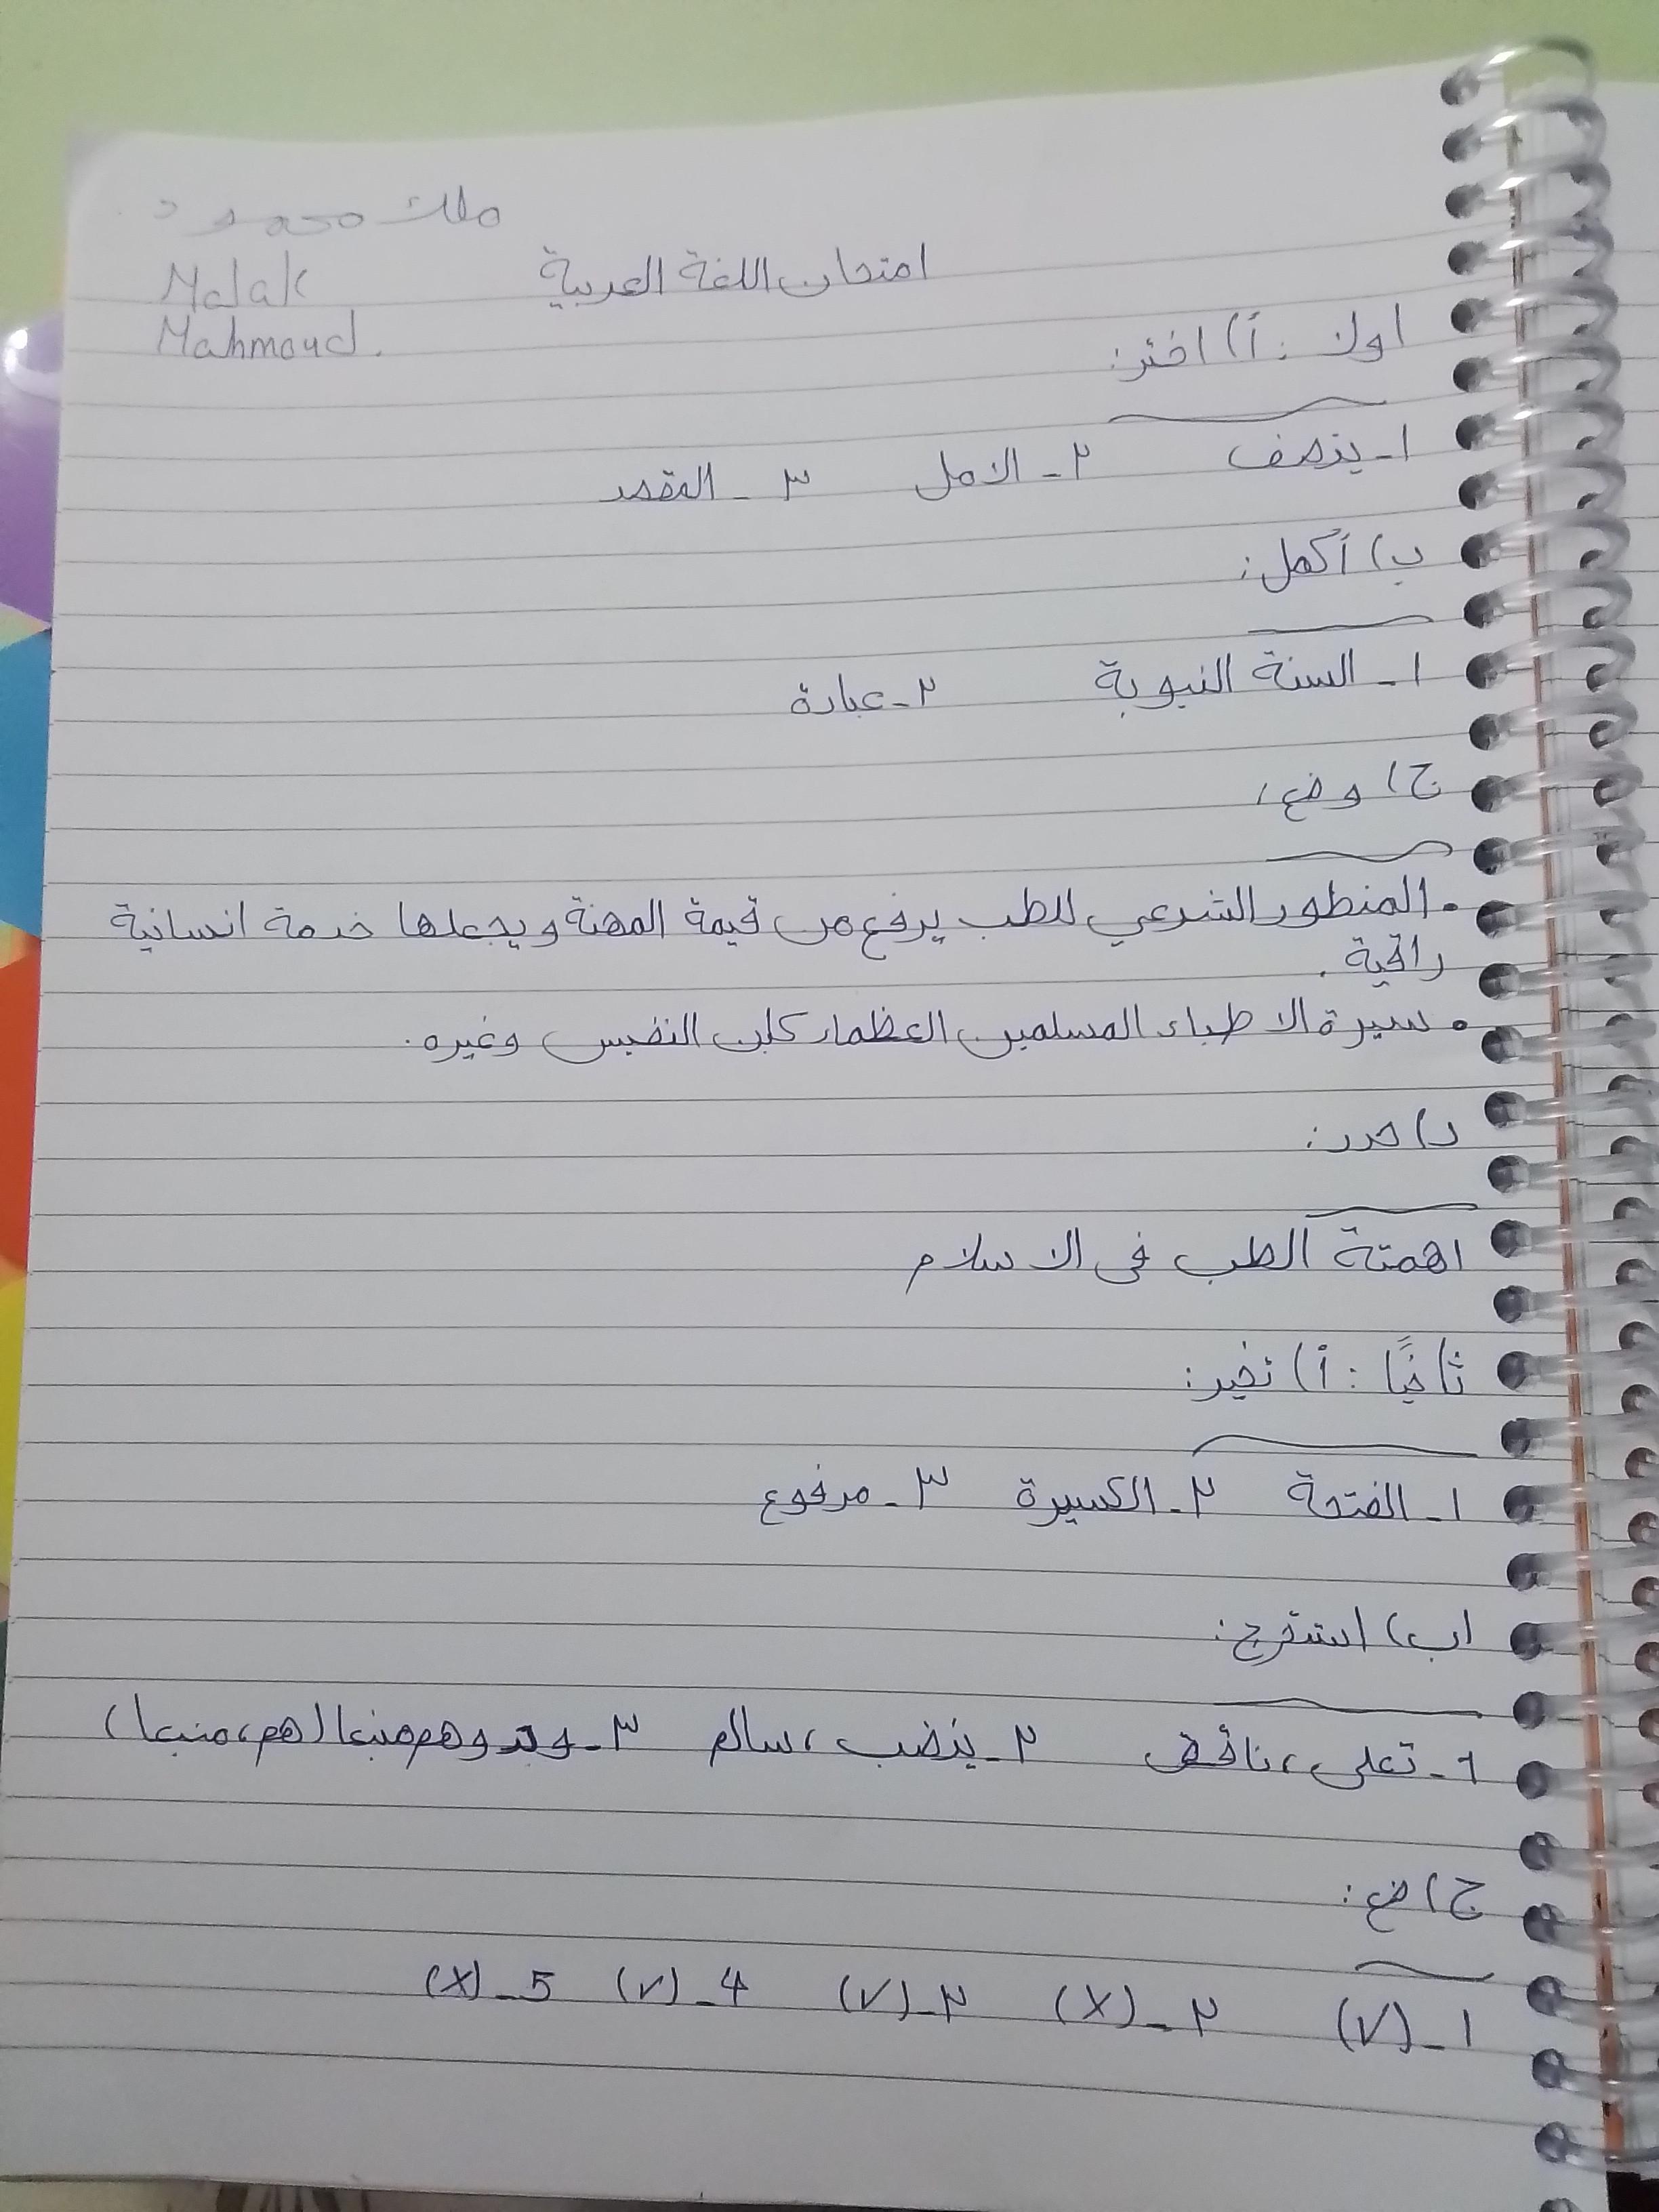 ملك محمود
Malak
Mahmoud.
امتحان اللغة العربية
اولا : أ) اختر:
١- ينصف ٢- الامل ٣- المقصد
ب) أكمل:
١- السنة النبوية ٢- عبادة
ج) وضع:
• المنظور الشرعي للطب يرفع من قيمة المهنة ويجعلها خدمة انسانية
راقية.
• سيرة الاطباء المسلمين العظماء كابن النفيس وغيره.
د) حدد:
اهمتة الطب فى الاسلام
ثانيًا : أ) تخير:
١- الفتحة ٢- الكسيرة ٣- مرفوع
ب) استخرج:
1- تعلى، ناقص ٢- ينضب، سالم ٣- وهم منبعا (هم، منبعا)
ج) ضع:
١- (√) ٢- (X) ٣- (√) 4- (√) 5- (X)